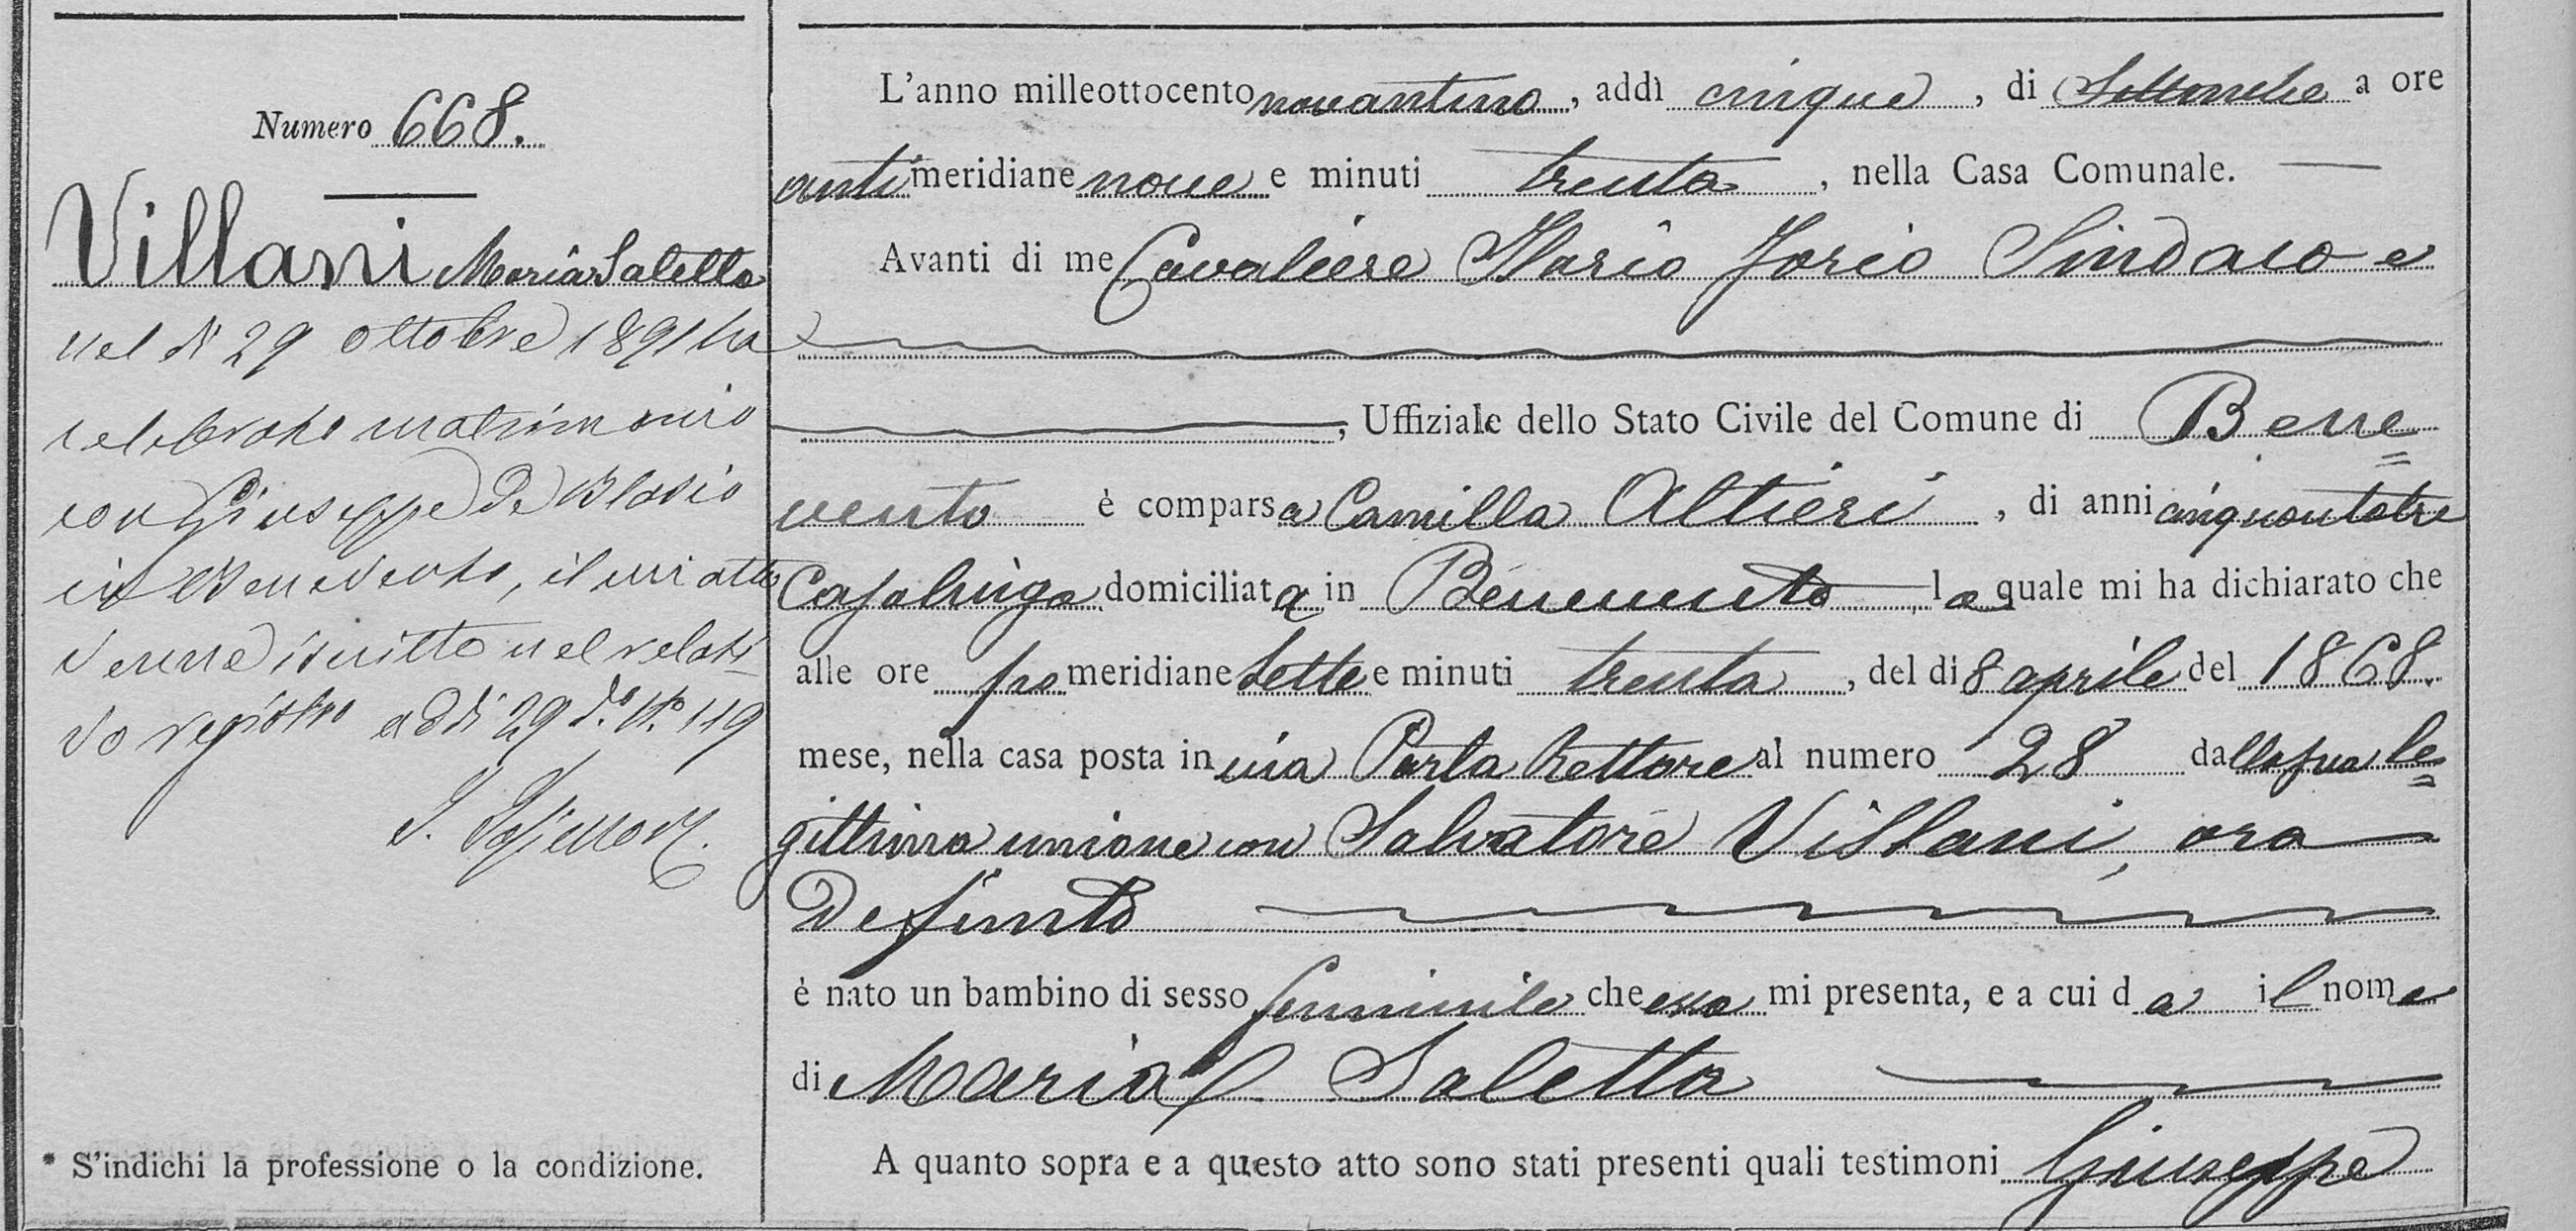 Numero 668.
Villani Maria Saletta
nel dì 29 ottobre 1891 ha
celebrato matrimonio
con Giuseppe de Blasio
in Benevento, il cui atto
venne iscritto nel relati
vo registro addì 29 do. No. 119
* S'indichi la professione o la condizione.
L'anno milleottocentonovantuno, addì cinque, di Settembre a ore
antimeridiane nove e minuti trenta, nella Casa Comunale.
Avanti di me Cavaliere Ilario Jorio Sindaco e
, Uffiziale dello Stato Civile del Comune di Bene
vento è comparsa Camilla Altieri, di anni cinquantatre
Casalinga domiciliata in Benevento la quale mi ha dichiarato che
alle ore pomeridiane sette e minuti trenta, del dì 8 aprile del 1868.
mese, nella casa posta in via Porta Rettore al numero 28 dalla sua le
gittima unione con Salvatore Villani, ora
Defunto
è nato un bambino di sesso femminile che essa mi presenta, e a cui dà il nome
di Maria Saletta
A quanto sopra e a questo atto sono stati presenti quali testimoni Giuseppe